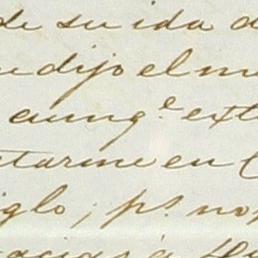 de su ida a
e dijo el m
aunq.e ext
tarme en C
iglo; p.s no p